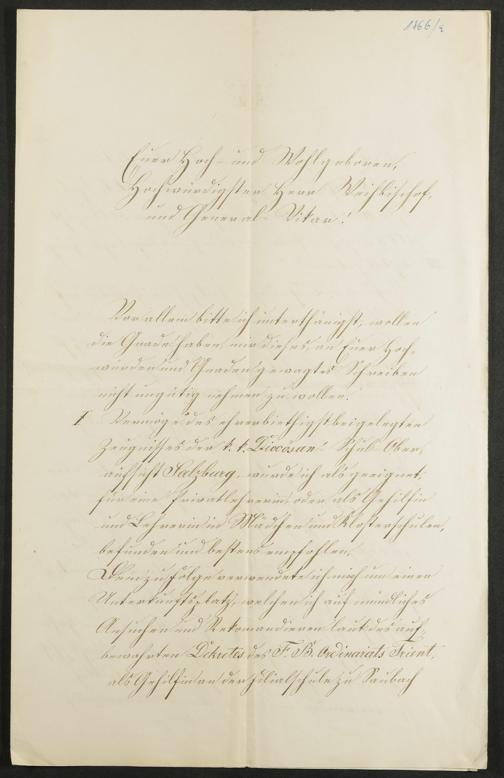 1866/4
Euer Hoch- und Wohlgeboren,
Hochwürdigster Herr Weihbischof,
und General-Vikar!
Vor allem bitte ich unterthänigst, wollen
die Gnade haben, mir dieses, an Euer Hoch-
würden und Gnaden gewagtes Schreiben
nicht ungütig nehmen zu wollen.
1 Vermöge des ehrerbiethigst beigelegten
Zeugnisses der k. k. Diocösan-Schul-Ober-
aufsicht Salzburg, wurde ich als geeignet,
für eine Privatlehrerin oder als Gehilfin
und Lehrerin in Mädchen und Klosterschulen,
befunden und bestens empfohlen.
Demzufolge verwendete ich mich um einen
Unterkunftsplatz, welchen ich auf mündliches
Ansuchen und Rekomandieren laut des auf-
bewahrten Dekretes des F. B. Ordinariats Trient,
als Gehilfin an der Filialschule zu